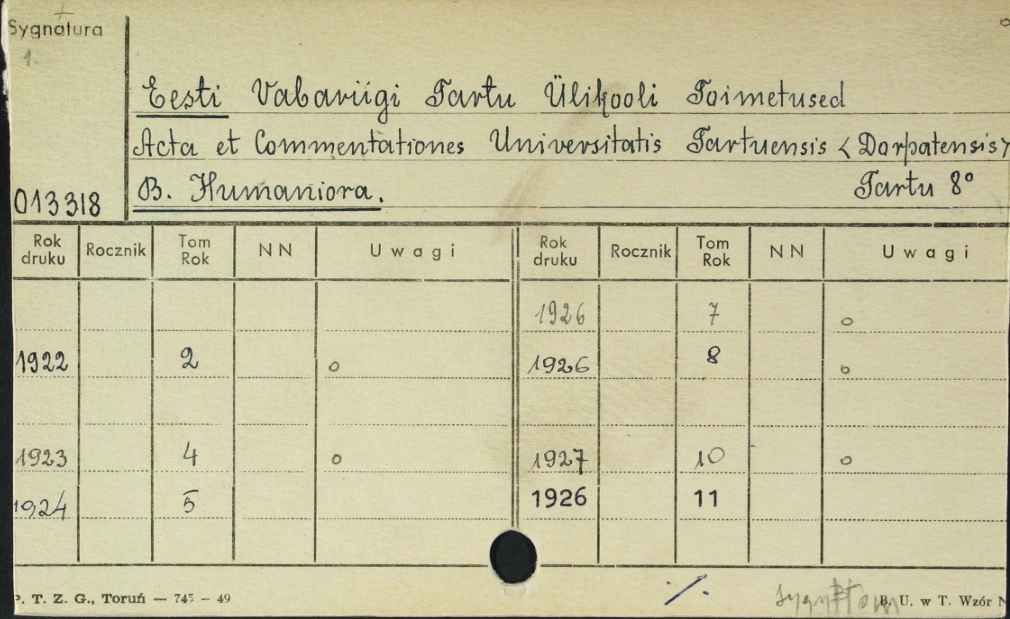 Sygnatura
1.
Eesti Vabariigi Tartu Ülikooli Toimetused
Acta et Commentationes Universitatis Tartuensis <Dorpatensis>
B. Humaniora. Tartu 8°
013318
Rok druku Rocznik Tom Rok NN Uwagi Rok druku Rocznik Tom Rok NN Uwagi
1926 7 o
1922 2 o 1926 8 o
1923 4 o 1927 10 o
1924 5 1926 11
P. T. Z. G., Toruń — 745 — 49
B. U. w T. Wzór N